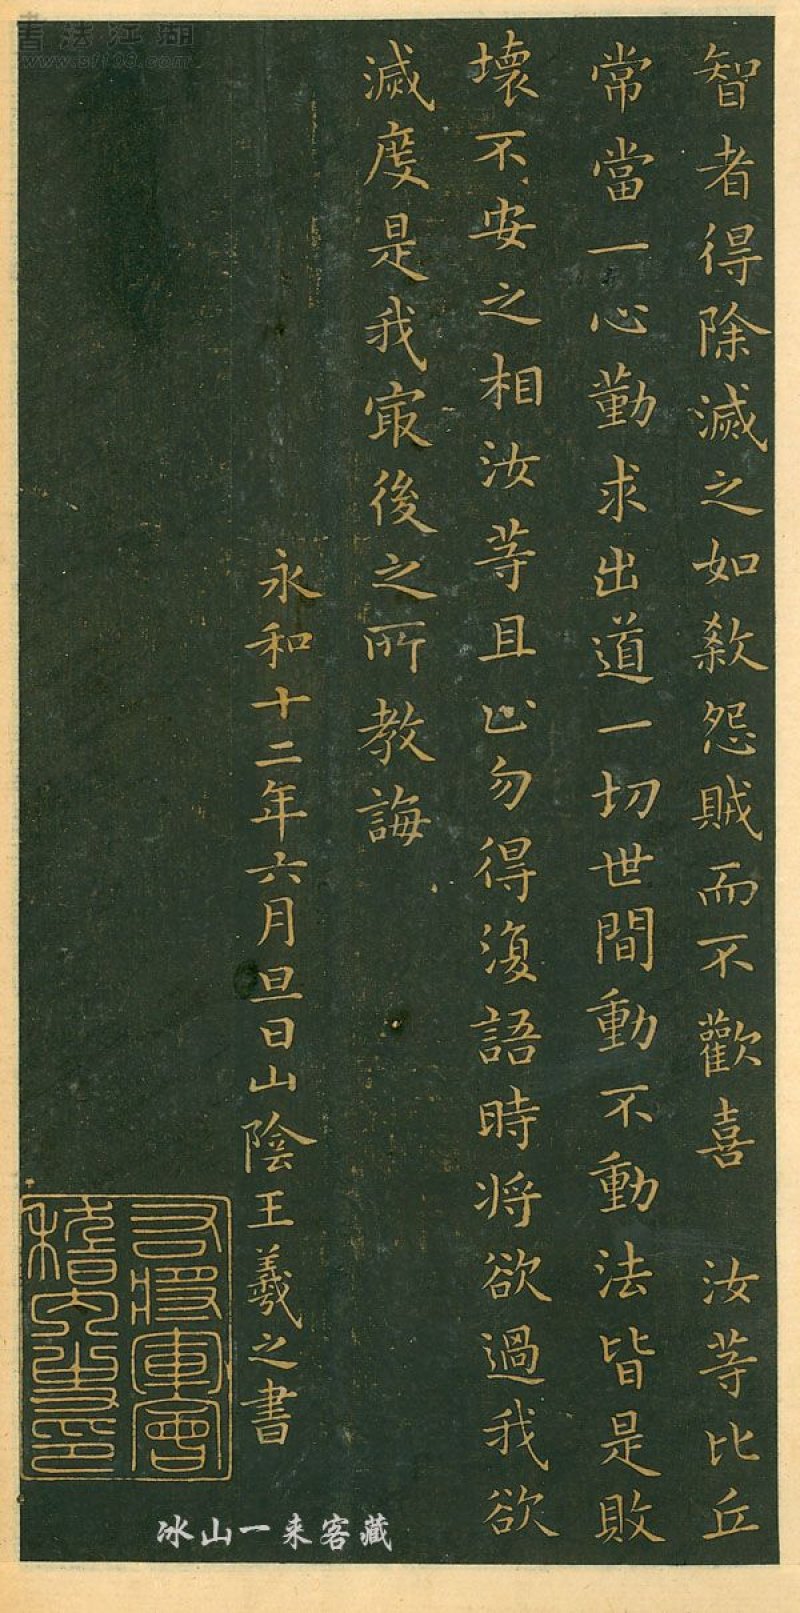 智者得除滅之如煞怨賊而不歡喜　汝等比丘
常當一心勤求出道一切世間動不動法皆是敗
壞不安之相汝等且止勿得復語時將欲過我欲
滅度是我㝡後之所教誨
永和十二年六月旦日山陰王羲之書
右將軍會
稽內史印
冰山一来客藏
書法江湖
www.sf108.com